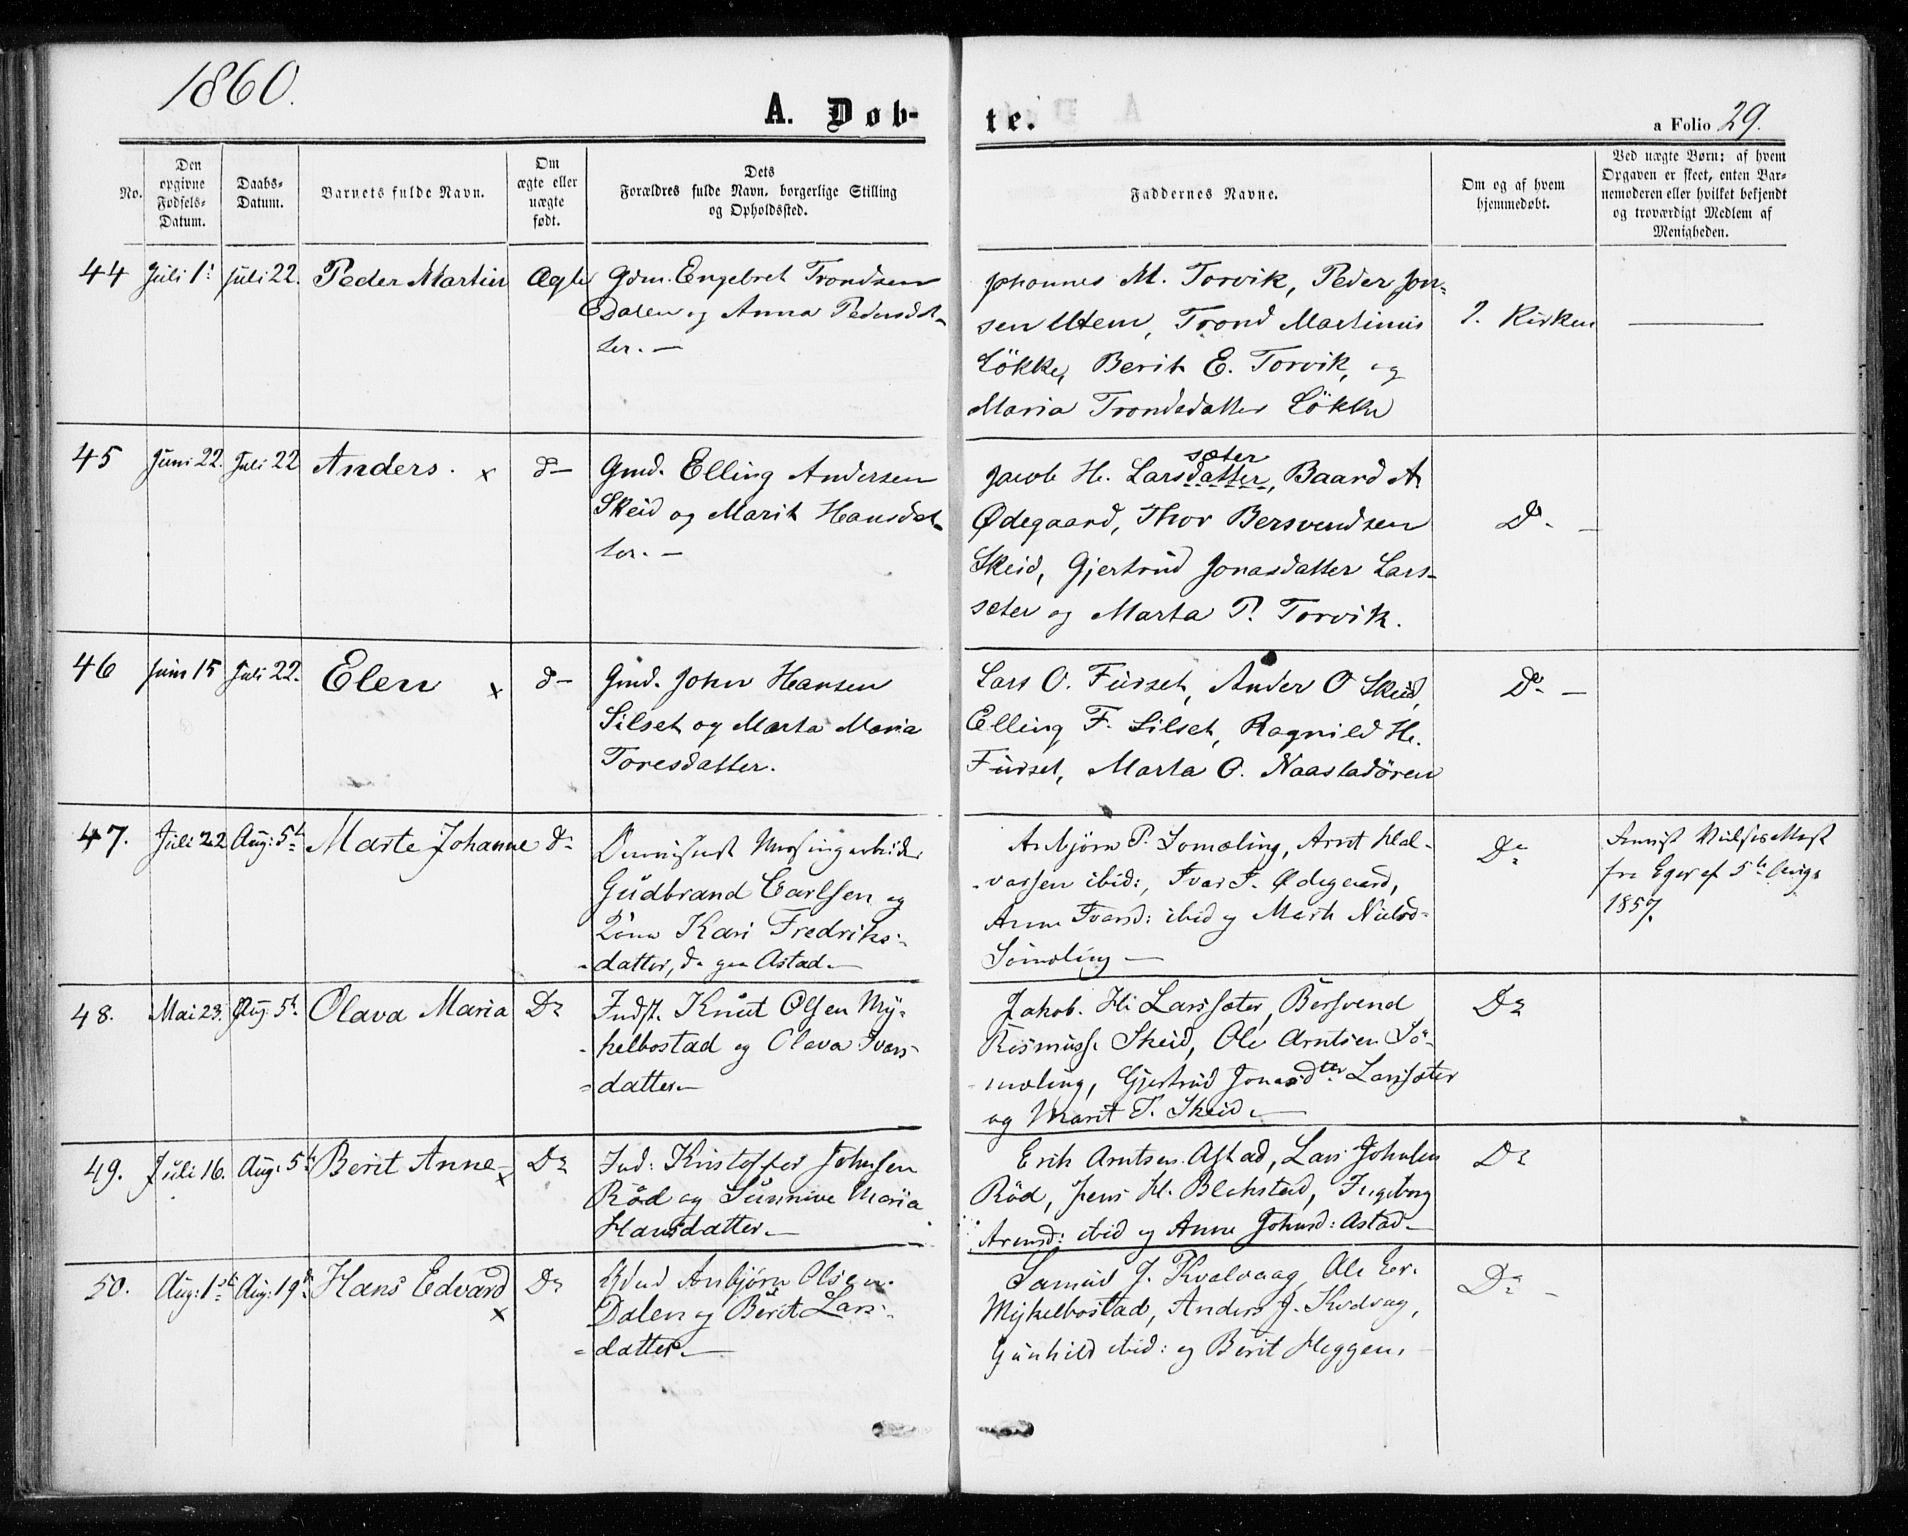 1860.
A. Døb-
te.
a Folio 29.
No.
Den
opgivne
Fødsels-
Datum.
Daabs-
Datum.
Barnets fulde Navn.
Om
ægte eller
uægte
født.
Dets
Forældres fulde Navn, borgerlige Stilling
og Opholdssted.
Faddernes Navne.
Om og af hvem
hjemmedøbt.
Ved uægte Børn: af hvem
Opgaven er skeet, enten Bar-
nemoderen eller hvilket bekjendt
og troværdigt Medlem af
Menigheden.
44 Juli 1. Juli 22. Peder Martin Ægte
Gdm. Engebret Trondsen
Dalen og Anna Pedersdat-
ter. —
Johannes M. Torvik, Peder Jon-
sen Utem, Trond Martinus
Løkke, Berit E. Torvik, og
Maria Trondsdatter Løkke
I. Kirken
45 Juni 22. Juli 22 Anders. x d—
Gmd. Elling Andersen
Skeid og Marit Hansdat-
ter. —
sæter
Jacob H. Larsdatter, Baard A.
Ødegaard, Thor Bersvendsen
Skeid, Gjertrud Jonasdatter Lars-
sæter og Marta P. Torvik.
D. —
46 Juni 15 Juli 22. Elen x d—
Gmd. John Hansen
Silset og Marta Maria
Toresdatter.
Lars O. Furset, Ander O Skeid,
Elling F. Silset, Ragnild H.
Furset, Marta O. Naastadøren
Do —
47. Juli 22 Aug: 5t Marte Johanne do
Gudbrand Carlsen og
Kone Kari Fredriks-
datter, d. gaa Astad.—
Anbjørn P. Somoling, Arnt Hal-
-vorsen ibid:, Ivar I. Ødegaard,
Anne Ivarsd: ibid og Marit Nielsd-
Sömoling —
Do
fra Eger af 5te Aug.
1857.
48. Mai 23. Aug: 5t. Olava Maria Do
Indst. Knut Olsen My-
-kelbostad og Olava Ivars-
-datter.—
Jakob. H. Larssæter, Bersvend
Rasmuss. Skeid, Ole Arntsen Sö-
-moling, Gjertrud Jonasdter Larssæter
og Marit T. Skeid.—
Do
49. Juli 16. Aug: 5t Berit Anne x Do
Ind: Kristoffer Johnsen
Röd og Sunnive Maria
Hansdatter.—
Erik Arntsen Astad, Lars Johnsen
Röd, Jens H. Blekstad, Ingeborg
Arensd: ibid og Anne Johnsd: Astad.—
Do
50. Aug: 1st Aug: 19d Hans Edvard x Do
Anbjørn Olsen
Dalen og Berit Lars-
-datter.—
Samuel J. Kvalvaag, Ole Er.
Mykelbostad, Anders J. Kvalvag,
Gunhild ibid: og Berit Heggem.
Do —